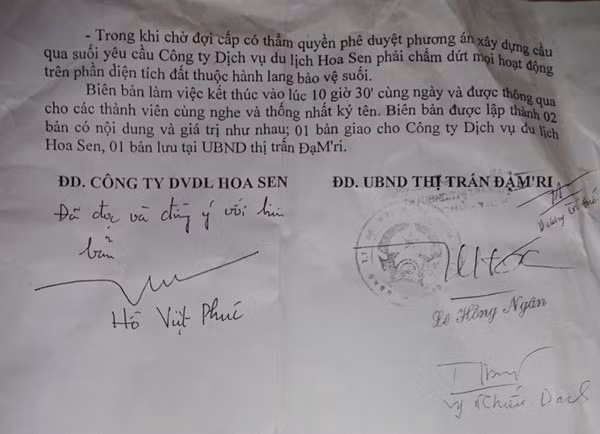 - Trong khi chờ đợi cấp có thẩm quyền phê duyệt phương án xây dựng cầu
qua suối yêu cầu Công ty Dịch vụ du lịch Hoa Sen phải chấm dứt mọi hoạt động
trên phần diện tích đất thuộc hành lang bảo vệ suối.
Biên bản làm việc kết thúc vào lúc 10 giờ 30' cùng ngày và được thông qua
cho các thành viên cùng nghe và thống nhất ký tên. Biên bản được lập thành 02
bản có nội dung và giá trị như nhau; 01 bản giao cho Công ty Dịch vụ du lịch
Hoa Sen, 01 bản lưu tại UBND thị trấn ĐạM'ri.
ĐD. CÔNG TY DVDL HOA SEN
Đã đọc và đồng ý với biên
bản
Hồ Việt Phúc
ĐD. UBND THỊ TRẤN ĐẠM'RI
Lê Hồng Ngân